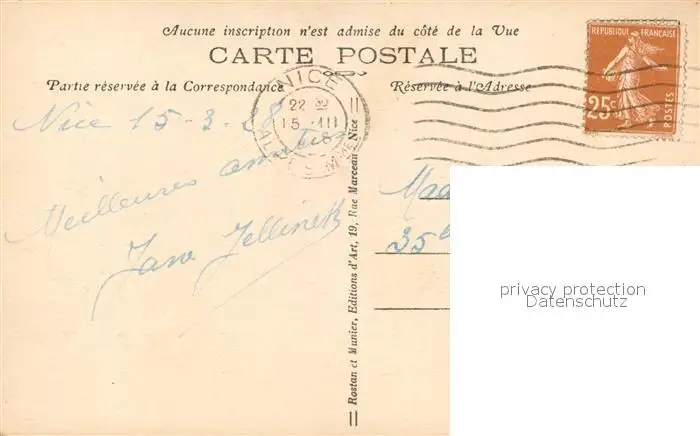 Aucune inscription n'est admise du côté de la Vue
CARTE POSTALE
Partie réservée à la Correspondance
Réservée à l'Adresse
NICE
22
15 III
RÉPUBLIQUE FRANÇAISE
25c
POSTES
Nice 15-3-28
Meilleures amitiés
Jellinek
Rostan et Munier, Editions d'Art, 19, Rue Marceau, Nice
Mad
35
privacy protection
Datenschutz